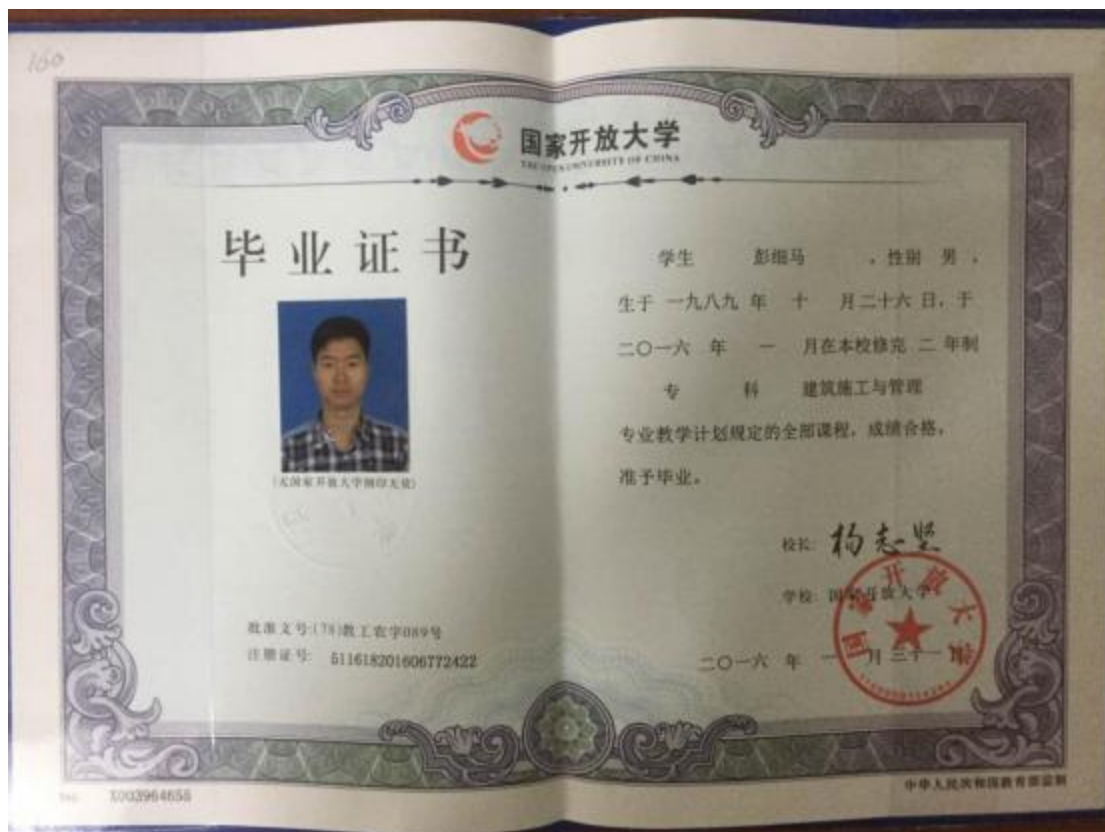 160
国家开放大学
THE OPEN UNIVERSITY OF CHINA
毕业证书
(无国家开放大学钢印无效)
批准文号:(78)教工农字089号
注册证号: 511618201606772422
学生 彭细马 ，性别 男 ，
生于 一九八九 年 十 月二十六 日，于
二〇一六 年 一 月在本校修完 二 年制
专 科 建筑施工与管理
专业教学计划规定的全部课程，成绩合格，
准予毕业。
校长: 杨志坚
学校: 国家开放大学
二〇一六 年 一 月三十一
国家开放大学
No. X003964655
中华人民共和国教育部监制